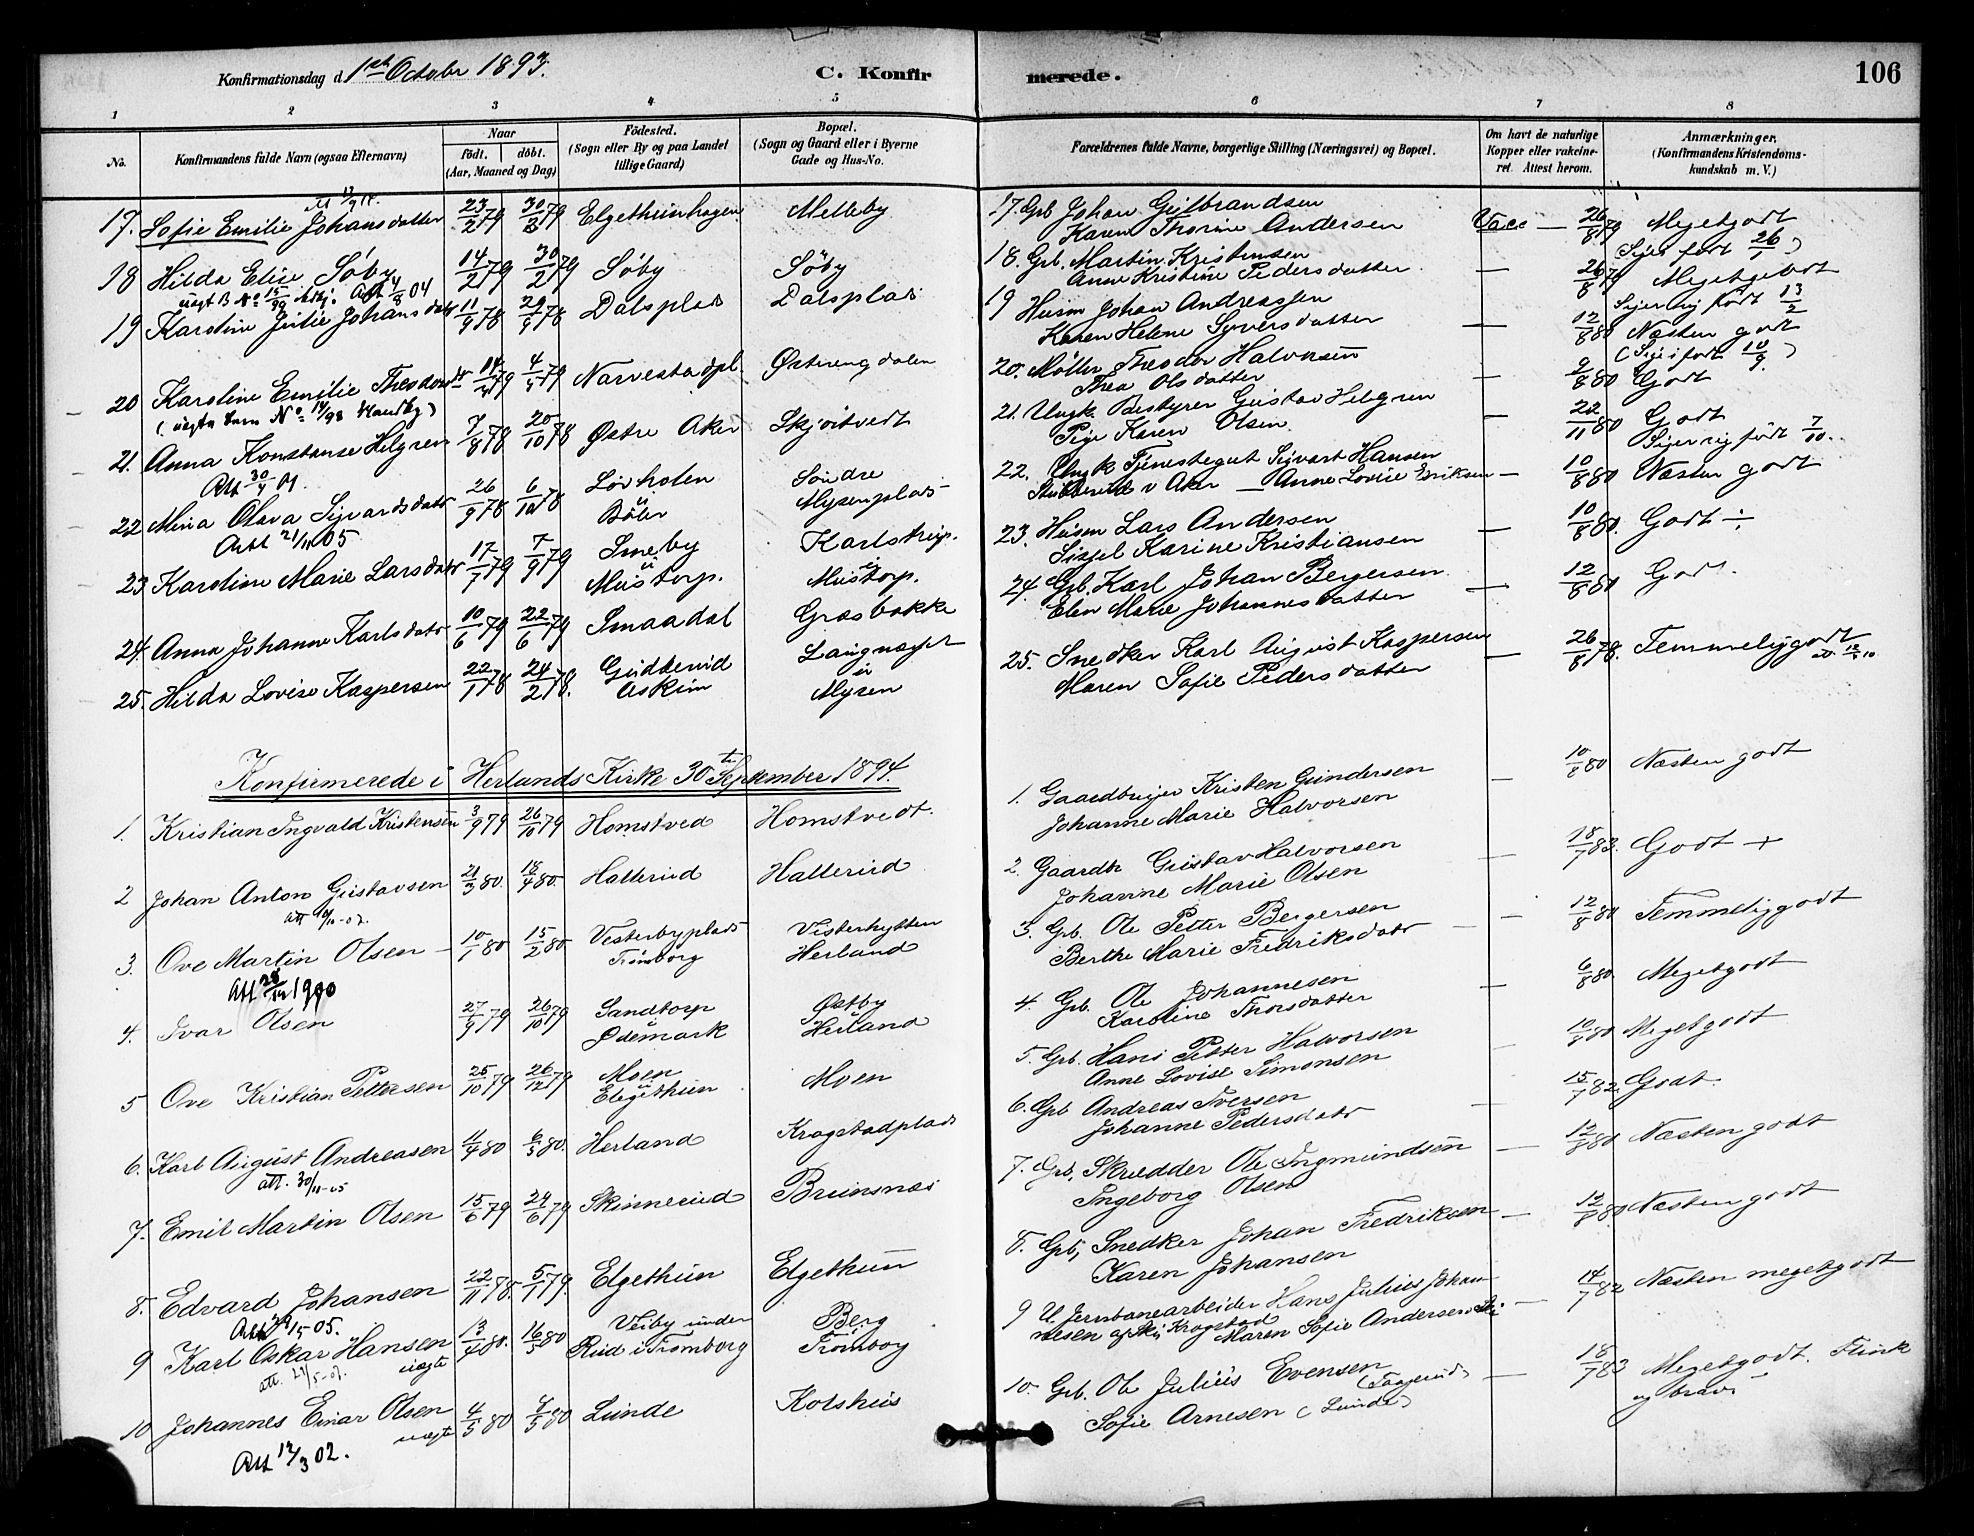 Konfirmationsdag d. 1ste October 1893.
C. Konfirmerede.
106
1 2 3 4 5 6 7 8
No.
Konfirmandens fulde Navn (ogsaa Efternavn)
Naar
födt. döbt.
(Aar, Maaned og Dag)
Födested.
(Sogn eller By og paa Landet
tillige Gaard)
Bopæl.
(Sogn og Gaard eller i Byerne
Gade og Hus-No.
Forældrenes fulde Navne, borgerlige Stilling (Næringsvei) og Bopæl.
Om havt de naturlige
Kopper eller vakcine-
ret. Attest herom.
Anmærkninger.
(Konfirmandens Kristendoms-
kundskab m. V.)
17. Sofie Emilie Johansdatter 23/2 79 30/3 79 Elgethunhagen Melleby
17. Grb Johan Gulbrandsen Vacc — 26/8 79 Megetgodt
Karen Thorine Andersen
18 Hilda Elise Søby 14/2 79 30/2 79 Søby Søby
uægt B No 15/99 Att 4/8 04
18. Grb. Martin Kristensen — 26/8 79 Megetgodt
Anne Kristine Pedersdatter
Siger født 26/1
19 Karoline Julie Johansdatr 11/9 78 29/9 78 Dalsplads Dalsplads
19 Husm Johan Andreassen — 12/8 80 Næsten godt
Karen Helene Syversdatter
Siger sig født 13/2
20 Karoline Emilie Theodorsdr 14/4 79 4/5 79 Narvestadpl. Østerengdalen
(uægte barn No 14/98
20. Møller Theodor Halvorsen — 9/8 80 Godt
Thea Olsdatter
(Siges født 10/9)
21. Anna Konstanse Helgren 7/8 78 20/10 78 Østre Aker Skjøltvedt
Att 30/4 01.
21. Ungk. Bestyrer Gustav Helgren — 22/11 80 Godt
Pige Karen Olsen
Siger sig født 7/10.
22 Mina Olava Sigvardsdatr 26/9 78 6/10 78 Løvholen u Bøler Søndre Mysenplads
Att 21/11 05
22. Ungk Tjenestegut Sigvart Hansen — 10/8 80 Næsten godt
v Aker — Anne Lovise Eriksen
23 Karoline Marie Larsdatr 17/7 79 7/9 79 Smeby u Mustorp. Karlstrup. u Mustorp.
23. Husm Lars Andersen — 10/8 80. Godt ÷
Sissel Karine Kristiansen
24. Anna Johanne Karlsdatr 10/6 79 22/6 79 Smaadal Græsbakke
24. Grb. Karl Johan Bergersen — 12/8 80 Godt.
Elen Marie Johannesdatter
25. Hilda Lovise Kaspersen 22/1 78 24/2 78. Gudkerud Askim Langnæset u Mysen
25. Snedker Karl August Kaspersen — 26/8 78. Temmeliggodt
Maren Sofie Pedersdatter
Konfirmerede i Herlands Kirke 30te September 1894.
1. Kristian Ingvald Kristensen 3/9 79 26/10 79 Homstved Homstvedt.
1. Gaardbruger Kristen Gundersen — 10/8 80 Næsten godt
Johanne Marie Halvorsen
2 Johan Anton Gustavsen 21/3 80. 18/4 80. Hallerud Hallerud
att 10/11-07.
2. Gaardbr Gustav Halvorsen — 18/7 83. Godt +
Johanne Marie Olsen
3. Ove Martin Olsen 10/1 80 15/2 80. Vesterbyplads Trømborg Vesterhytten Herland
Att 28/12 1900
3. Grb. Ole Petter Bergersen — 12/8 80 Temmeliggodt
Berthe Marie Fredriksdatr
4. Ivar Olsen 27/9 79 26/10 79 Sandtorp u Ødemark Østby u Herland
4. Grb. Ole Johannesen — 6/8 80. Megetgodt
Karoline Thorsdatter
5 Ove Kristian Pettersen 25/10 79 26/12 79 Moen u Elegethun Moen
5. Grb. Hans Petter Halvorsen 10/8 80 Megetgodt
Anne Lovise Simonsen
6. Karl August Andreasen 11/4 80 6/5 80. Herland Krogstadplads
att. 30/11-05
6. Grb Andreas Iversen — 15/7 82. Godt.
Johanne Pedersdatr
7. Emil Martin Olsen 15/6 79 24/6 79 Skinnerud Brunsnæs
7. Grb, Skrædder Ole Ingmundsen — 12/8 80 Næsten godt
Ingeborg Olsen
8. Edvard Johansen 22/11 78. 5/1 79. Elgethun Elgethun
8. Grb, Snedker Johan Fredriksen — 12/8 80 Næsten godt
Karen Johansen
9 Karl Oskar Hansen 13/4 80. 16/5 80 Veiby under Rud i Trømborg Berg Trømborg
att. uægte
9 U. Jernbanearbeider Hans Julius Johan- — 14/7 82 Næsten megetgodt
nesen af Ski, Krogstad Maren Sofie Andersen
10 Johannes Einar Olsen 4/5 80 7/5 80 Lunde Kolshus
uægte
Att 12/3 02.
10. Grb. Ole Julius Evensen — 18/7 83 Megetgodt. Flink
Sofie Arnesen (Lunde) og brav.